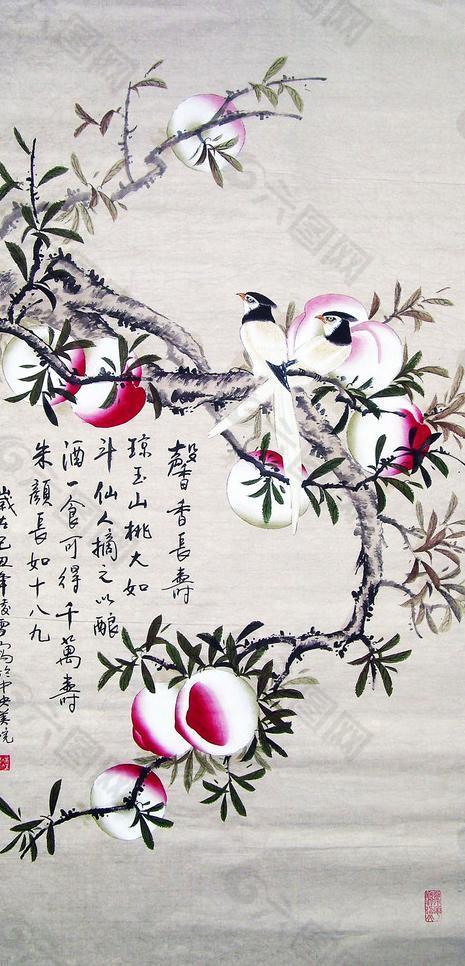 馨香長壽
琼玉山桃大如
斗仙人摘之以酿
酒一食可得千萬壽
朱顏長如十八九
歲在己丑年凌雪寫於中央美院
六图网